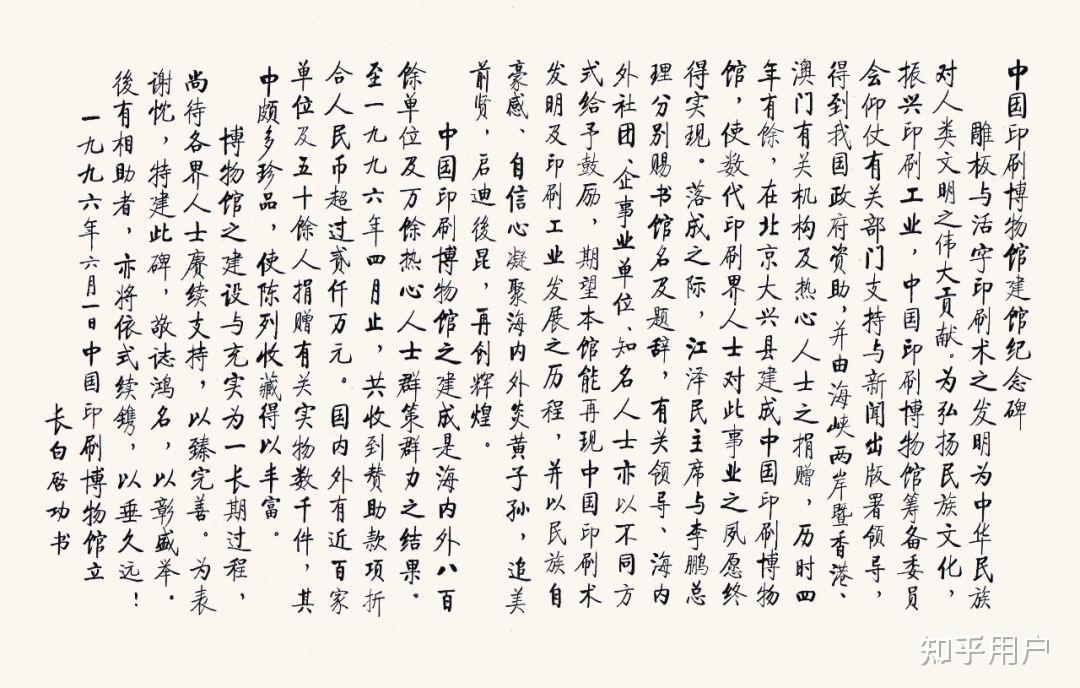 中国印刷博物馆建馆纪念碑
雕板与活字印刷术之发明为中华民族
对人类文明之伟大贡献。为弘扬民族文化，
振兴印刷工业，中国印刷博物馆筹备委员
会仰仗有关部门支持与新闻出版署领导，
得到我国政府资助，并由海峡两岸暨香港、
澳门有关机构及热心人士之捐赠，历时四
年有馀，在北京大兴县建成中国印刷博物
馆，使数代印刷界人士对此事业之夙愿终
得实现。落成之际，江泽民主席与李鹏总
理分别赐书馆名及题辞，有关领导、海内
外社团、企事业单位、知名人士亦以不同方
式给予鼓励，期望本馆能再现中国印刷术
发明及印刷工业发展之历程，并以民族自
豪感、自信心凝聚海内外炎黄子孙，追美
前贤，启迪後昆，再创辉煌。
中国印刷博物馆之建成是海内外八百
馀单位及万馀热心人士群策群力之结果。
至一九九六年四月止，共收到赞助款项折
合人民币超过贰仟万元。国内外有近百家
单位及五十馀人捐赠有关实物数千件，其
中颇多珍品，使陈列收藏得以丰富。
博物馆之建设与充实为一长期过程，
尚待各界人士赓续支持，以臻完善。为表
谢忱，特建此碑，敬志鸿名，以彰盛举.
後有相助者，亦将依式续镌，以垂久远！
一九九六年六月一日中国印刷博物馆立
长白启功书
知乎用户